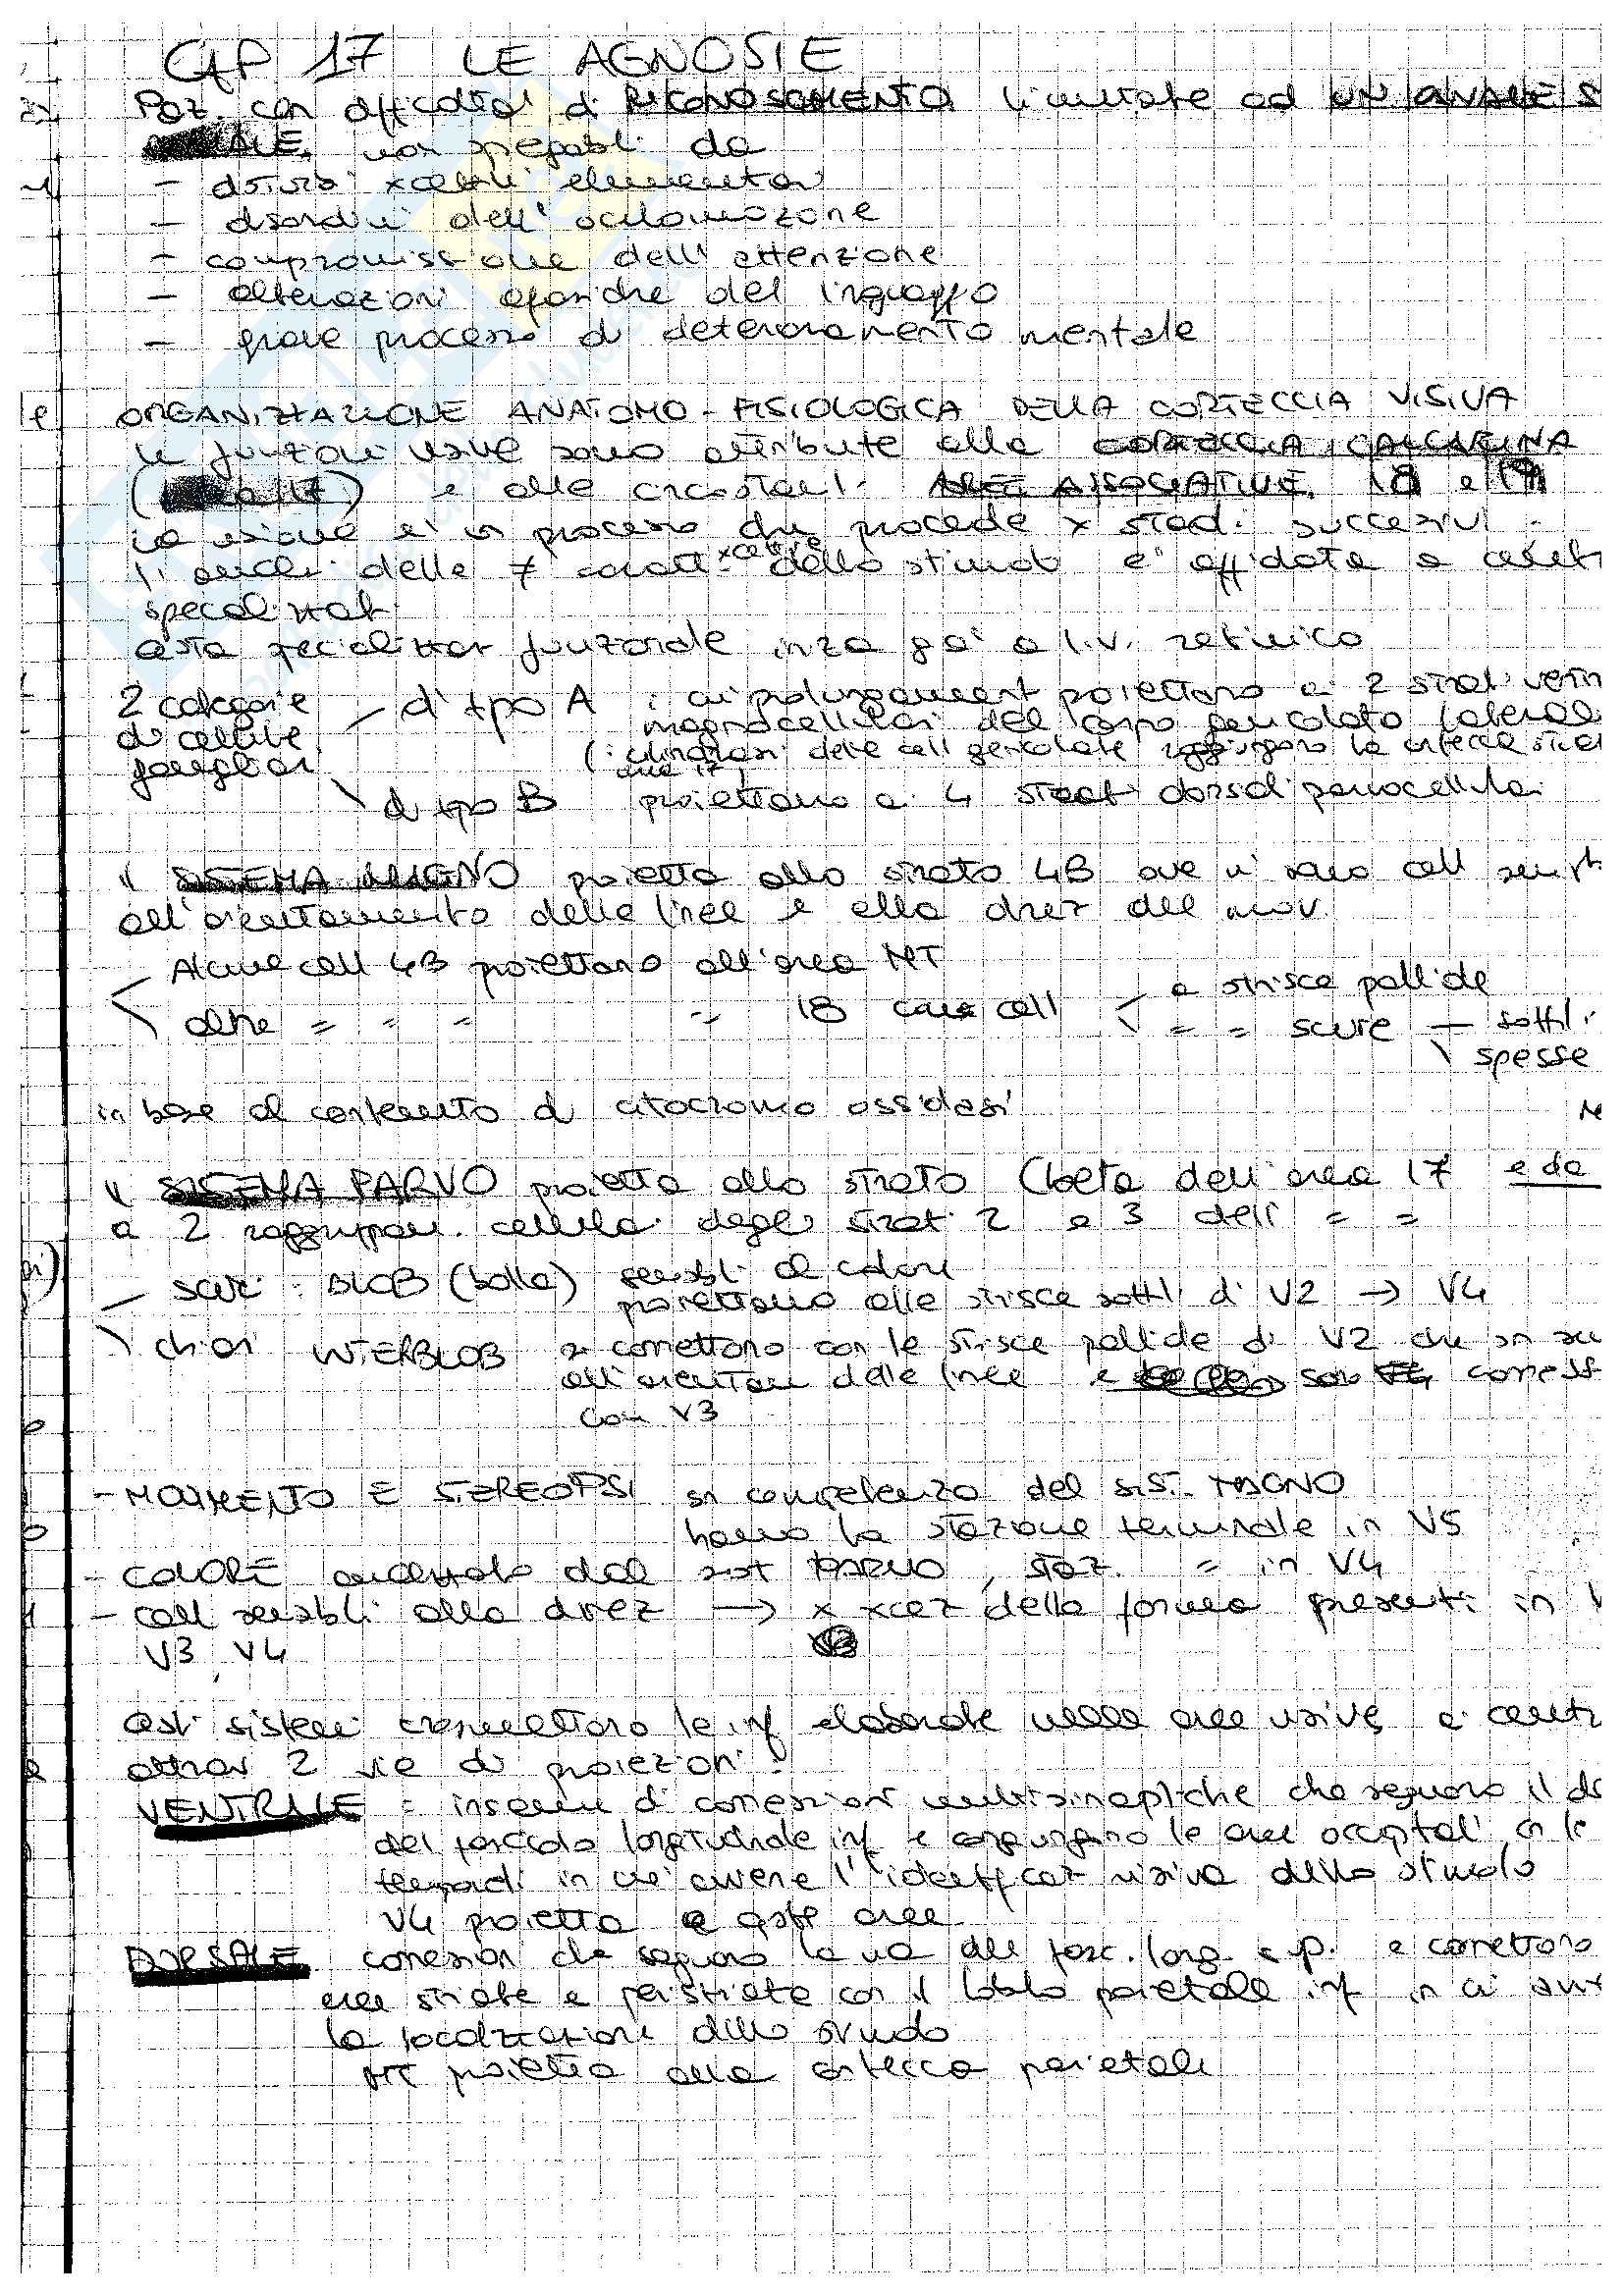 CAP 17 LE AGNOSIE
Paz. con difficoltà di RICONOSCIMENTO limitate ad UN CANALE S
ALE, non spiegabili da
- disturbi xcettivi elementari
- disordini dell'oculomozione
- compromissione dell'attenzione
- alterazioni afasiche del linguaggio
- grave processo di deterioramento mentale
ORGANIZZAZIONE ANATOMO-FISIOLOGICA DELLA CORTECCIA VISIVA
le funzioni visive sono attribuite alla CORTECCIA CALCARINA
(area 17) e alle circostanti AREE ASSOCIATIVE 18 e 19
La visione è un processo che procede x stadi successivi.
l'analisi delle ≠ caratt. xcettive dello stimolo è affidata a centri
specializzati
qsta specializzaz funzionale inizia già a liv. retinico
2 categorie
di cellule
gangliari
- di tipo A : i cui prolungamenti proiettano ai 2 strati ventr
magnocellulari del corpo genicolato laterale
(i cilindrassi delle cell genicolate raggiungono la corteccia stria
area 17)
\ di tipo B proiettano ai 4 strati dorsali parvocellulari
il SISTEMA MAGNO proietta allo strato 4B ove vi sono cell sensib
all'orientamento delle linee e alla direz del mov.
Alcune cell 4B proiettano all'area MT
altre = = = = 18 con cell - a strisce pallide
\ = = scure - sottili
\ spesse
in base al contenuto di citocromo ossidasi
il SISTEMA PARVO proietta allo strato Cbeta dell'area 17 e da
a 2 raggruppam. cellulari degli strati 2 e 3 dell' = =
- scuri : BLOB (bolla) sensibili al colore
proiettano alle strisce sottili di V2 → V4
\ chiari INTERBLOB si connettono con le strisce pallide di V2 che sn se
all'orientam delle linee e sono conness
con V3
- MOVIMENTO E STEREOPSI sn competenza del SIST. MAGNO
hanno la stazione terminale in V5
- COLORE analizzato dal sist PARVO, staz. = in V4
- cell sensibili alla direz → x xcez della forma presenti in V
V3, V4
Qsti sistemi trasmettono le inf elaborate nelle aree visive a centri
attrav 2 vie di proiezioni:
VENTRALE = insieme di connessioni multisinaptiche che seguono il de
del fascicolo longitudinale inf e congiungono le aree occipitali cn le
temporali in cui avviene l'identificaz visiva dello stimolo
V4 proietta a qste aree
DORSALE connessioni che seguono la via del fasc. long. sup. e connettono
aree striate e peristriate con il lobulo parietale inf in cui avv
la localizzazione dello stimolo
MT proietta alla corteccia parietale